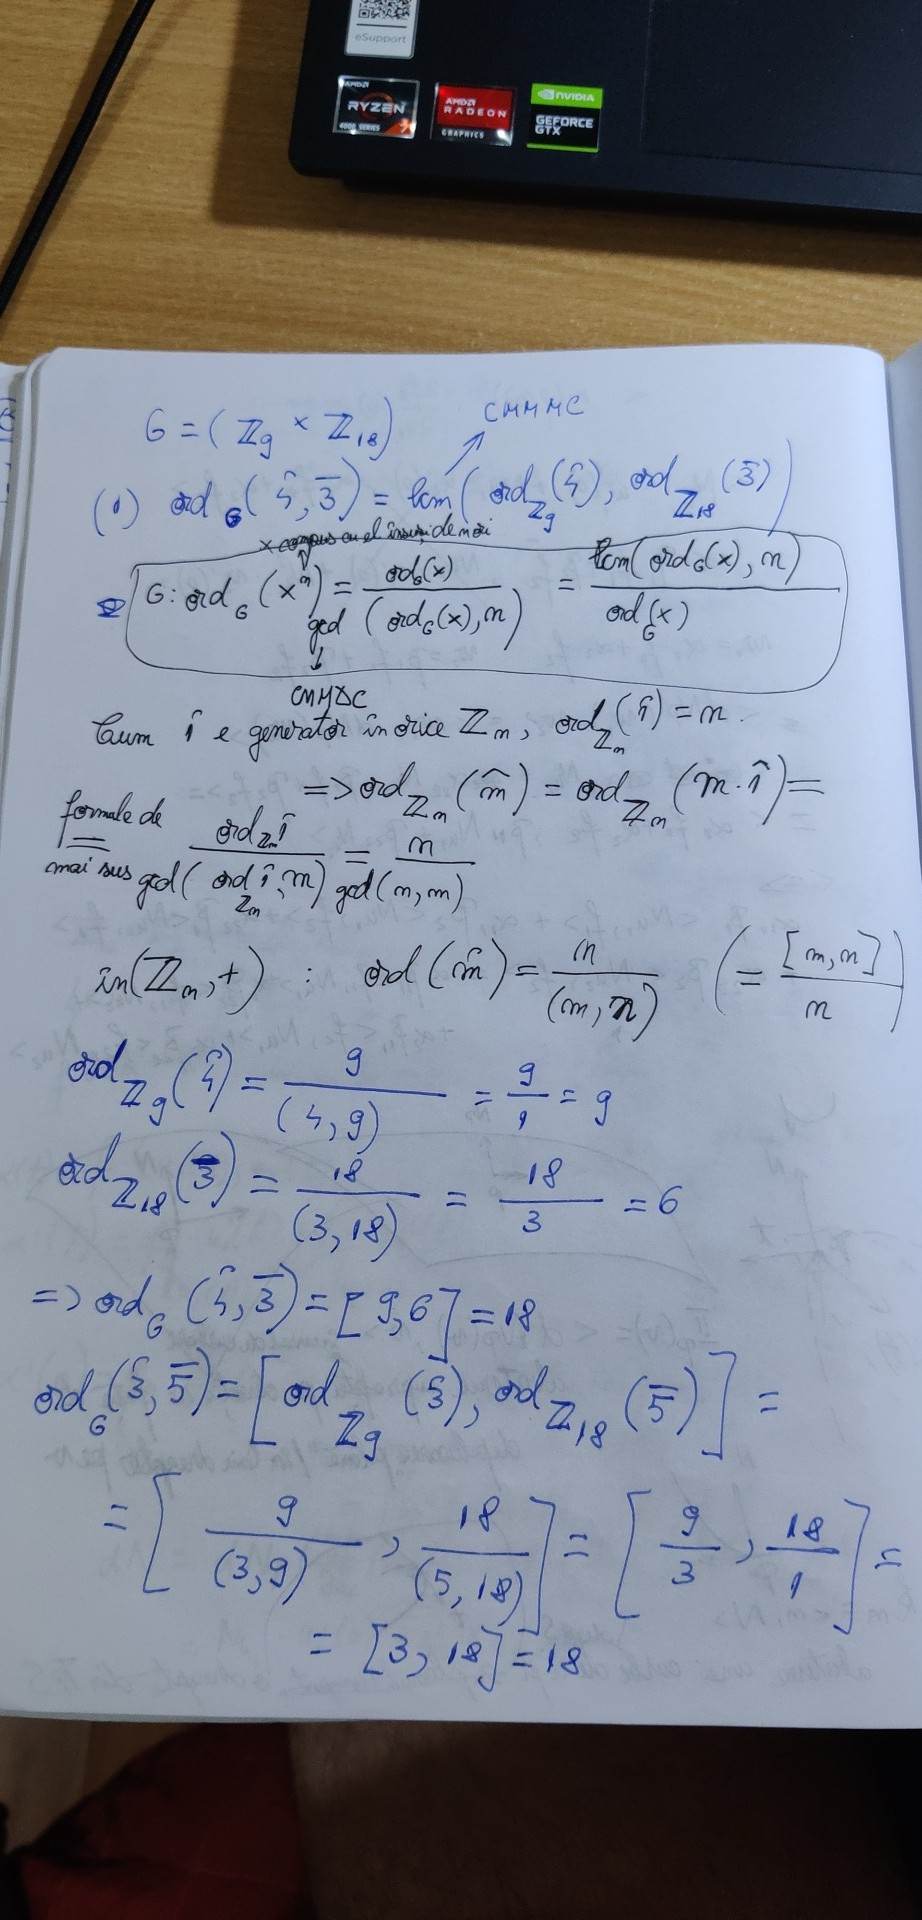 eSupport
AMDA
RYZEN
4000 SERIES
7
AMDA
RADEON
GRAPHICS
NVIDIA
GEFORCE
GTX
CMMMC
G = (ℤ₉ × ℤ₁₈)
(1) ord_G (4̂, 3̅) = lcm( ord_ℤ₉(4̂), ord_ℤ₁₈(3̅))
x compus cu el însuși de n ori
G: ord_G (xⁿ) = ord_G(x) / gcd (ord_G(x), n) = lcm(ord_G(x), n) / ord_G(x)
CMMDC
Cum 1̂ e generator în orice ℤₙ, ord_ℤₙ(1̂) = n.
=> ord_ℤₙ(m̂) = ord_ℤₙ(m·1̂) =
formule de mai sus = ord_ℤₙ 1̂ / gcd( ord_ℤₙ 1̂, m) = n / gcd(n, m)
în (ℤₙ, +) : ord(m̂) = n / (m, n) (= [m, n] / n)
ord_ℤ₉(4̂) = 9 / (4, 9) = 9/1 = 9
ord_ℤ₁₈(3̅) = 18 / (3, 18) = 18 / 3 = 6
=> ord_G (4̂, 3̅) = [9, 6] = 18
ord_G (3̂, 5̅) = [ord_ℤ₉(3̂), ord_ℤ₁₈(5̅)] =
= [9 / (3, 9), 18 / (5, 18)] = [9/3, 18/1] =
= [3, 18] = 18